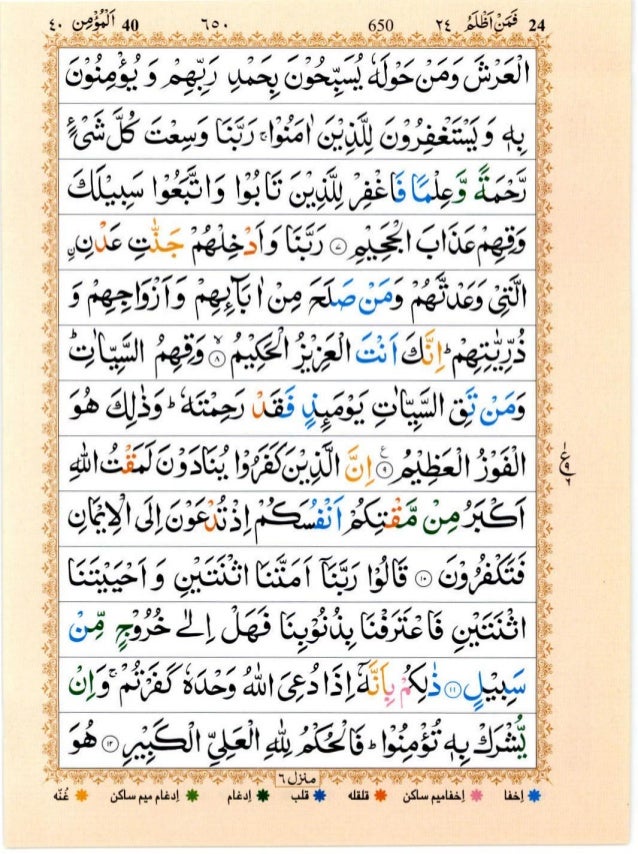 ٤٠ اَلْمُؤْمِن 40 ٦٥٠ 650 ٢٤ فَمَنْ اَظْلَمُ 24
الْعَرْشَ وَمَنْ حَوْلَهٗ يُسَبِّحُوْنَ بِحَمْدِ رَبِّهِمْ وَ يُؤْمِنُوْنَ
بِهٖ وَ يَسْتَغْفِرُوْنَ لِلَّذِيْنَ اٰمَنُوْا ۚ رَبَّنَا وَسِعْتَ كُلَّ شَىْءٍ
رَّحْمَةً وَّعِلْمًا فَاغْفِرْ لِلَّذِيْنَ تَابُوْا وَاتَّبَعُوْا سَبِيْلَكَ
وَقِهِمْ عَذَابَ الْجَحِيْمِ ۝٧ رَبَّنَا وَاَدْخِلْهُمْ جَنّٰتِ عَدْنِ ۨ
الَّتِىْ وَعَدْتَّهُمْ وَمَنْ صَلَحَ مِنْ اٰبَآئِهِمْ وَاَزْوَاجِهِمْ وَ
ذُرِّيّٰتِهِمْ ؕ اِنَّكَ اَنْتَ الْعَزِيْزُ الْحَكِيْمُ ۙ۝٨ وَقِهِمُ السَّيِّاٰتِ ؕ
وَمَنْ تَقِ السَّيِّاٰتِ يَوْمَئِذٍ فَقَدْ رَحِمْتَهٗ ؕ وَذٰلِكَ هُوَ
الْفَوْزُ الْعَظِيْمُ ۝٩ ع اِنَّ الَّذِيْنَ كَفَرُوْا يُنَادَوْنَ لَمَقْتُ اللّٰهِ
ع ٩ ٦
اَكْبَرُ مِنْ مَّقْتِكُمْ اَنْفُسَكُمْ اِذْ تُدْعَوْنَ اِلَى الْاِيْمَانِ
فَتَكْفُرُوْنَ ۝١٠ قَالُوْا رَبَّنَآ اَمَتَّنَا اثْنَتَيْنِ وَ اَحْيَيْتَنَا
اثْنَتَيْنِ فَاعْتَرَفْنَا بِذُنُوْبِنَا فَهَلْ اِلٰى خُرُوْجٍ مِّنْ
سَبِيْلٍ ۝١١ ذٰلِكُمْ بِاَنَّهٗٓ اِذَا دُعِىَ اللّٰهُ وَحْدَهٗ كَفَرْتُمْ ۚ وَاِنْ
يُّشْرَكْ بِهٖ تُؤْمِنُوْا ؕ فَالْحُكْمُ لِلّٰهِ الْعَلِىِّ الْكَبِيْرِ ۝١٢ هُوَ
منزل ٦
اِخفا اِخفامیم ساکن قلقله قلب اِدغام اِدغام میم ساکن غُنّه